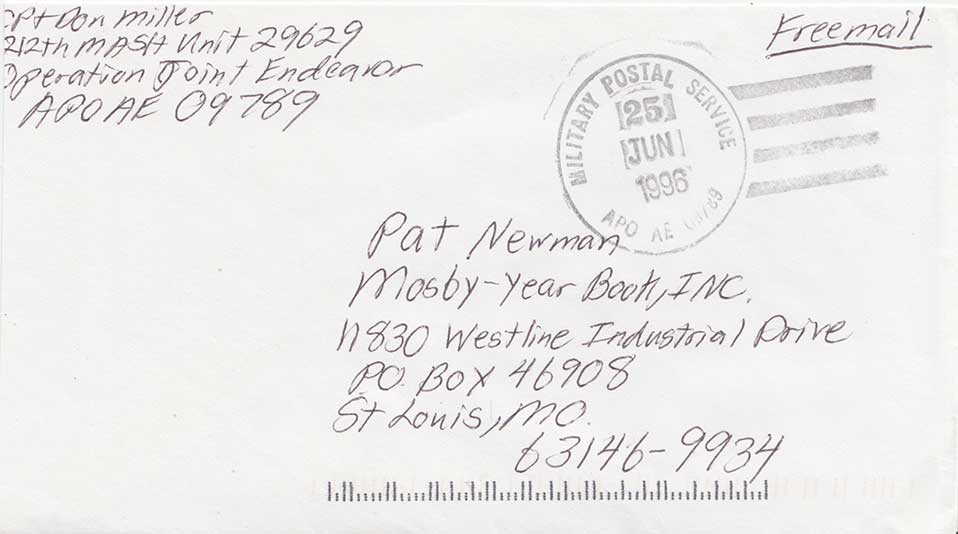 CPt Don Miller
212th MASH Unit 29629
Operation Joint Endeavor
APO AE 09789
Freemail
MILITARY POSTAL SERVICE
25
JUN
1996
APO AE 09789
Pat Newman
Mosby-Year Book, INC.
11830 Westline Industrial Drive
PO. Box 46908
St Louis, MO.
63146-9934